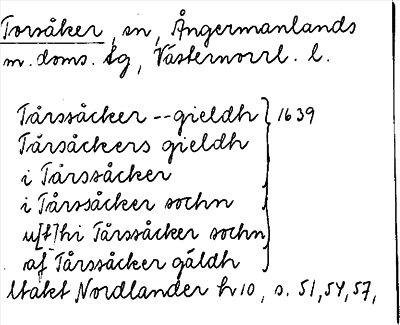 Torsåker, sn, Ångermanlands
m. doms. tg, Västernorrl. l.
Tårssäcker -- gieldh } 1639
Tårsåckers gieldh
i Tårssåcker
i Tårssåcker sochn
u[t]hi Tårssåcker sochn
af Tårssåcker gäldh
ltakt Nordlander h 10, s. 51, 54, 57,